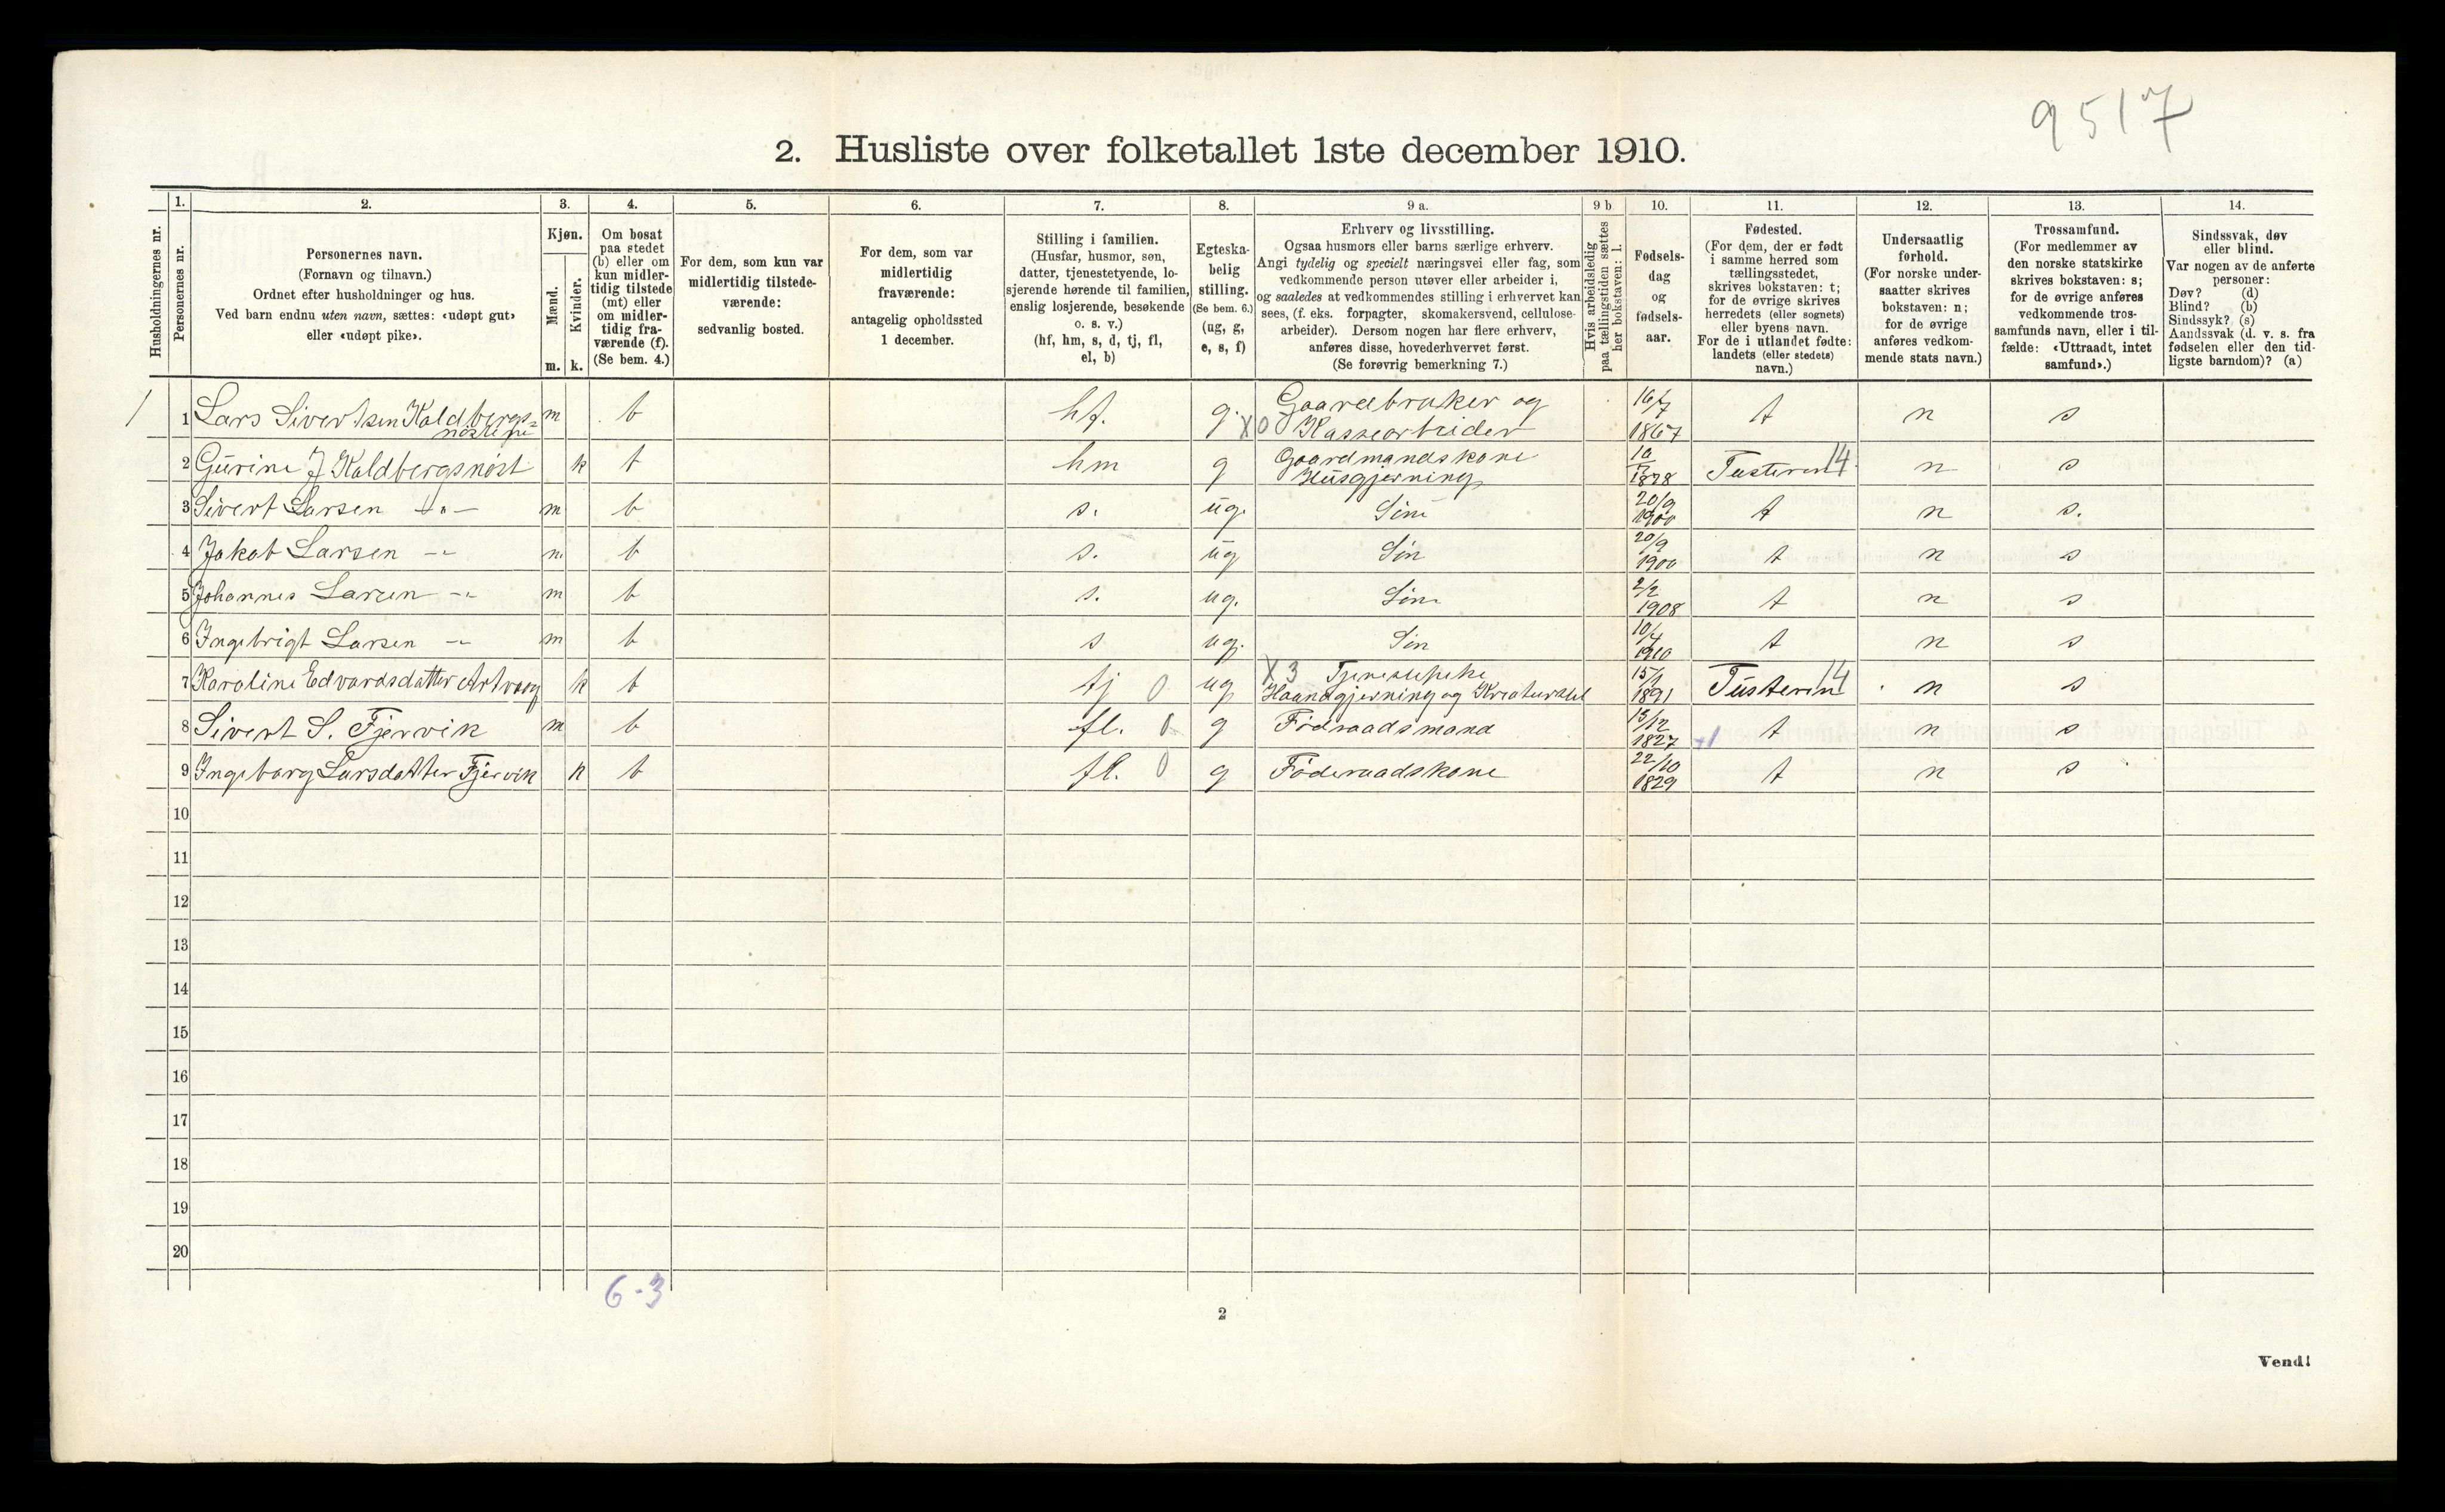 9517
2. Husliste over folketallet 1ste december 1910.
Husholdningernes nr.
1.
Personernes nr.
2.
Personernes navn.
(Fornavn og tilnavn.)
Ordnet efter husholdninger og hus.
Ved barn endnu uten navn, sættes: «udøpt gut»
eller «udøpt pike».
3.
Kjøn.
Mænd.
Kvinder.
m. k.
4.
Om bosat
paa stedet
(b) eller om
kun midler-
tidig tilstede
(mt) eller
om midler-
tidig fra-
værende (f).
(Se bem. 4.)
5.
For dem, som kun var
midlertidig tilstede-
værende:
sedvanlig bosted.
6.
For dem, som var
midlertidig
fraværende:
antagelig opholdssted
1 december.
7.
Stilling i familien.
(Husfar, husmor, søn,
datter, tjenestetyende, lo-
sjerende hørende til familien,
enslig losjerende, besøkende
o. s. v.)
(hf, hm, s, d, tj, fl,
el, b)
8.
Egteska-
belig
stilling.
(Se bem. 6.)
(ug, g,
e, s, f)
9 a.
Erhverv og livsstilling.
Ogsaa husmors eller barns særlige erhverv.
Angi tydelig og specielt næringsvei eller fag, som
vedkommende person utøver eller arbeider i,
og saaledes at vedkommendes stilling i erhvervet kan
sees, (f. eks. forpagter, skomakersvend, cellulose-
arbeider). Dersom nogen har flere erhverv,
anføres disse, hovederhvervet først.
(Se forøvrig bemerkning 7.)
9 b
Hvis arbeidsledig
paa tællingstiden sættes
her bokstaven: l.
10.
Fødsels-
dag
og
fødsels-
aar.
11.
Fødested.
(For dem, der er født
i samme herred som
tællingsstedet,
skrives bokstaven: t;
for de øvrige skrives
herredets (eller sognets)
eller byens navn.
For de i utlandet fødte:
landets (eller stedets)
navn.)
12.
Undersaatlig
forhold.
(For norske under-
saatter skrives
bokstaven: n;
for de øvrige
anføres vedkom-
mende stats navn.)
13.
Trossamfund.
(For medlemmer av
den norske statskirke
skrives bokstaven: s;
for de øvrige anføres
vedkommende tros-
samfunds navn, eller i til-
fælde: «Uttraadt, intet
samfund».)
14.
Sindssvak, døv
eller blind.
Var nogen av de anførte
personer:
Døv? (d)
Blind? (b)
Sindssyk? (s)
Aandssvak (d. v. s. fra
fødselen eller den tid-
ligste barndom)? (a)
1 1 Lars Sivertsen Koldbergs= m b hf. g. X0 Gaardbruker og Kassearbeider 16/7 1867 t n s
2 Gurine J Koldbergsnøst k t hm g Gaardmandskone Husgjerning 1878 Tusteren 14 n s
3 Sivert Larsen -"- m b s. ug. Søn 20/9 1900 t n s.
4 Jakob Larsen -"- m b s. ug Søn 20/9 1900 t n s
5 Johannes Larsen -"- m b s. ug. Søn 2/2 1908 t n s
6 Ingebrigt Larsen -"- m b s ug. Søn 10/4 1910 t n s
7 Karoline Edvardsdatter k b tj 0 ug X 3 Tjenestepike Haandgjerning og Kreaturstel 15/1 1891 Tusteren 14 n s
8 Sivert S. Fjervik m b fl. 0 g Födraadsmand 13/12 1827 +1 t n s
9 Ingeborg Larsdatter Fjervik k b fl. 0 g Föderaadskone 22/10 1829 t n s
10
11
12
13
14
15
16
17
18
19
20
6-3
2
Vend!